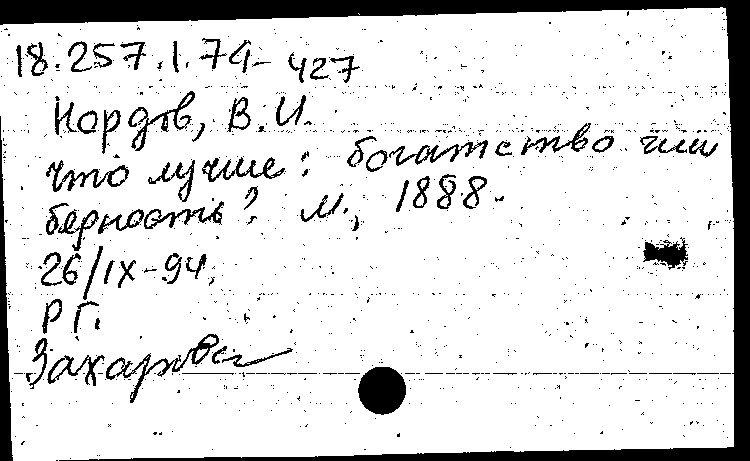 18.257.1.74-427
Нордов, В. И.
что лучше: богатство или
бедность? М., 1888.
26/IX-94.
РГ.
Захарова